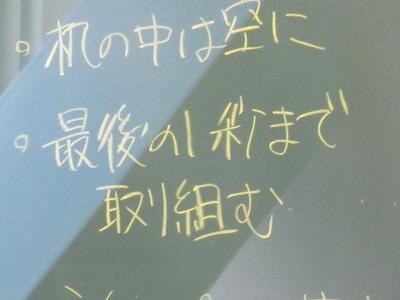 。机の中は空に
。最後の1秒まで
取り組む